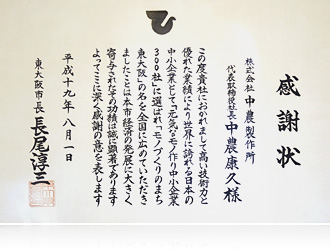 感謝状
株式会社 中農製作所
代表取締役社長 中農康久様
この度貴社におかれまして高い技術力と
優れた業績により世界に誇れる日本の
中小企業として「元気なモノ作り中小企業
300社」に選ばれ「モノづくりのまち
東大阪」の名を全国に広めていただき
ましたことは本市経済の発展に大きく
寄与されその功績は誠に顕著であります
よってここに深く感謝の意を表します
平成十九年八月一日
東大阪市長 長尾淳三